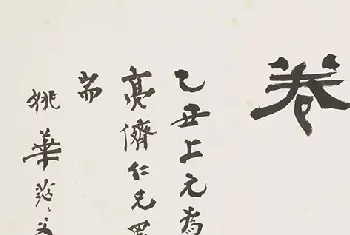 卷
乙丑上元為
亮儕仁兄
耑
姚華茫